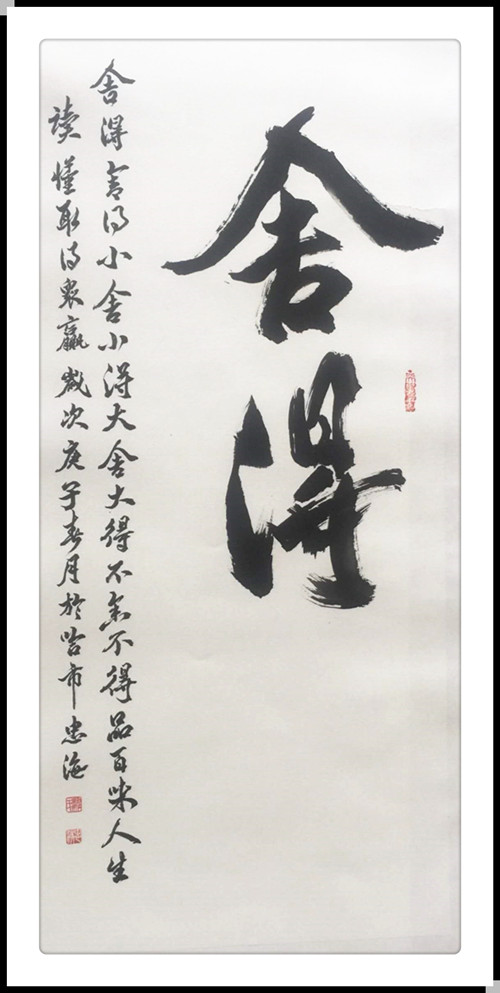 舍得
舍得舍得小舍小得大舍大得不舍不得品百味人生
讀懂取得贏歲次庚子春月於哈市忠海